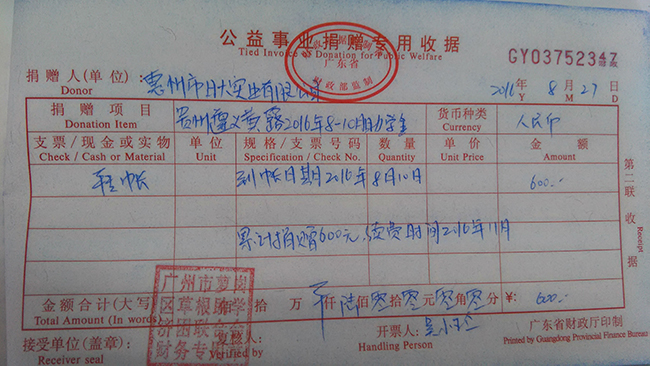 公益事业捐赠专用收据
Tied Invoice of Donation for Public Welfare
广东省
财政部监制
GY03752347
捐赠人(单位): 惠州市 实业有限公司 2016年 8月 27日
Donor Y M D
捐赠项目 贵州遵义黄露2016年8-10月助学金 货币种类 人民币
Donation Item Currency
支票/现金或实物 单位 规格/支票号码 数量 单价 金额
Check / Cash or Material Unit Specification / Check No. Quantity Unit Price Amount
转帐 到帐日期2016年8月10日 600.-
累计捐赠600元,续费时间2016年11月
第二联 收据 Receipt
金额合计(大写) 拾 万 仟 陆佰 零拾 零元 零角 零分 ¥: 600.-
Total Amount (In words)
广州市萝岗
区草根助学
济困联合会
财务专用章
接受单位(盖章): 复核人: 开票人: 广东省财政厅印制
Receiver seal Verified by Handling Person Printed by Guangdong Provincial Finance Bureau